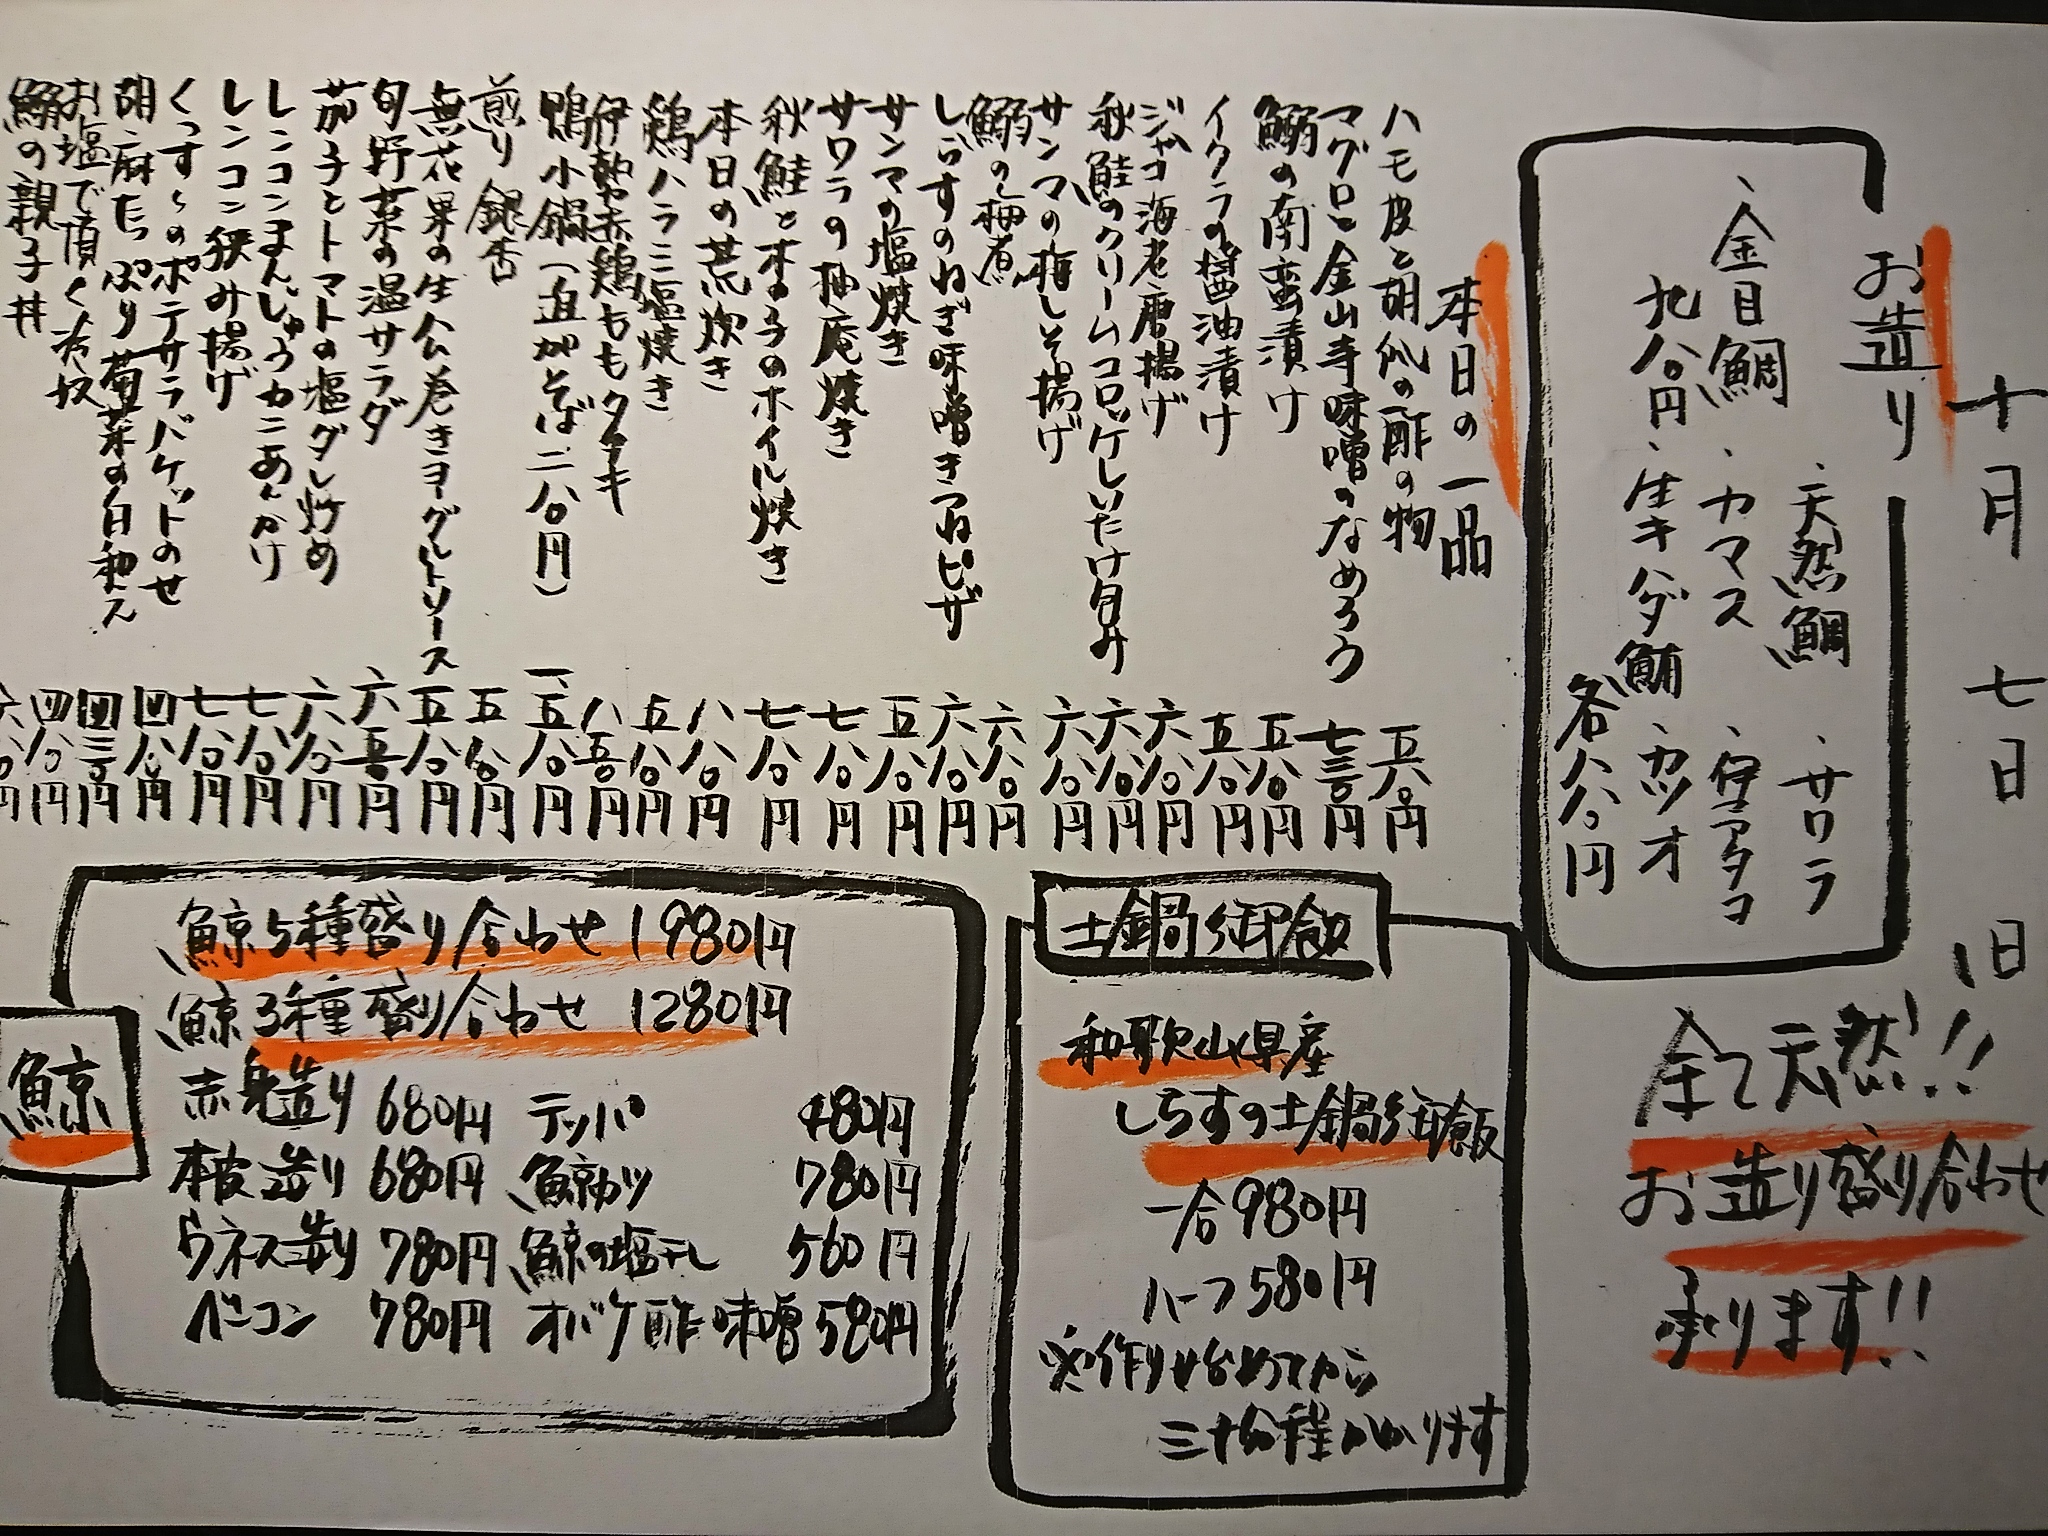 十月 七日 (旧
お造り
、天然鯛 、サワラ
、金目鯛 、カマス 、伊アタコ
九八〇円 、生キハダ鮪 、カツオ
各八八〇円
全て天然!!
お造り盛り合わせ
承ります!!
本日の一品
ハモ皮と胡瓜の酢の物 五六〇円
マグロと金山寺味噌のなめろう 七三〇円
鰯の南蛮漬け 五八〇円
イクラの醤油漬け 五八〇円
ジャコ海老唐揚げ 六八〇円
秋鮭のクリームコロッケしいたけ包み 六八〇円
サンマの梅しそ揚げ 六八〇円
鰯の梅煮 六八〇円
しらすのねぎ味噌きつねピザ 六八〇円
サンマの塩焼き 五八〇円
サワラの柚庵焼き 七八〇円
秋鮭ときのこのホイル焼き 七八〇円
本日の荒炊き 八八〇円
鶏ハラミ塩焼き 五八〇円
伊勢赤鶏ももタタキ 八五〇円
鴨小鍋(追がそば二八〇円) 一、五八〇円
煎り銀杏 五八〇円
無花果の生ハム巻きヨーグルトソース 五八〇円
旬野菜の温サラダ 六五〇円
茄子とトマトの塩ダレ炒め 六八〇円
レンコンまんじゅうカニあんかけ 七八〇円
レンコン挟み揚げ 七八〇円
くっすぅのポテサラバケットのせ 四八〇円
胡麻たっぷり菊菜の白和え 四三〇円
お塩で頂く冷奴 四八〇円
鰯の親子丼 六八〇円
土鍋御飯
和歌山県産
しらすの土鍋御飯
一合980円
ハーフ580円
※作り始めてから
三十分程かかります
鯨
鯨5種盛り合わせ 1980円
鯨3種盛り合わせ 1280円
赤身造り 680円 テッパ 480円
本皮造り 680円 鯨カツ 780円
ウネス造り 780円 鯨の塩干し 560円
ベーコン 780円 オバケ酢味噌 580円